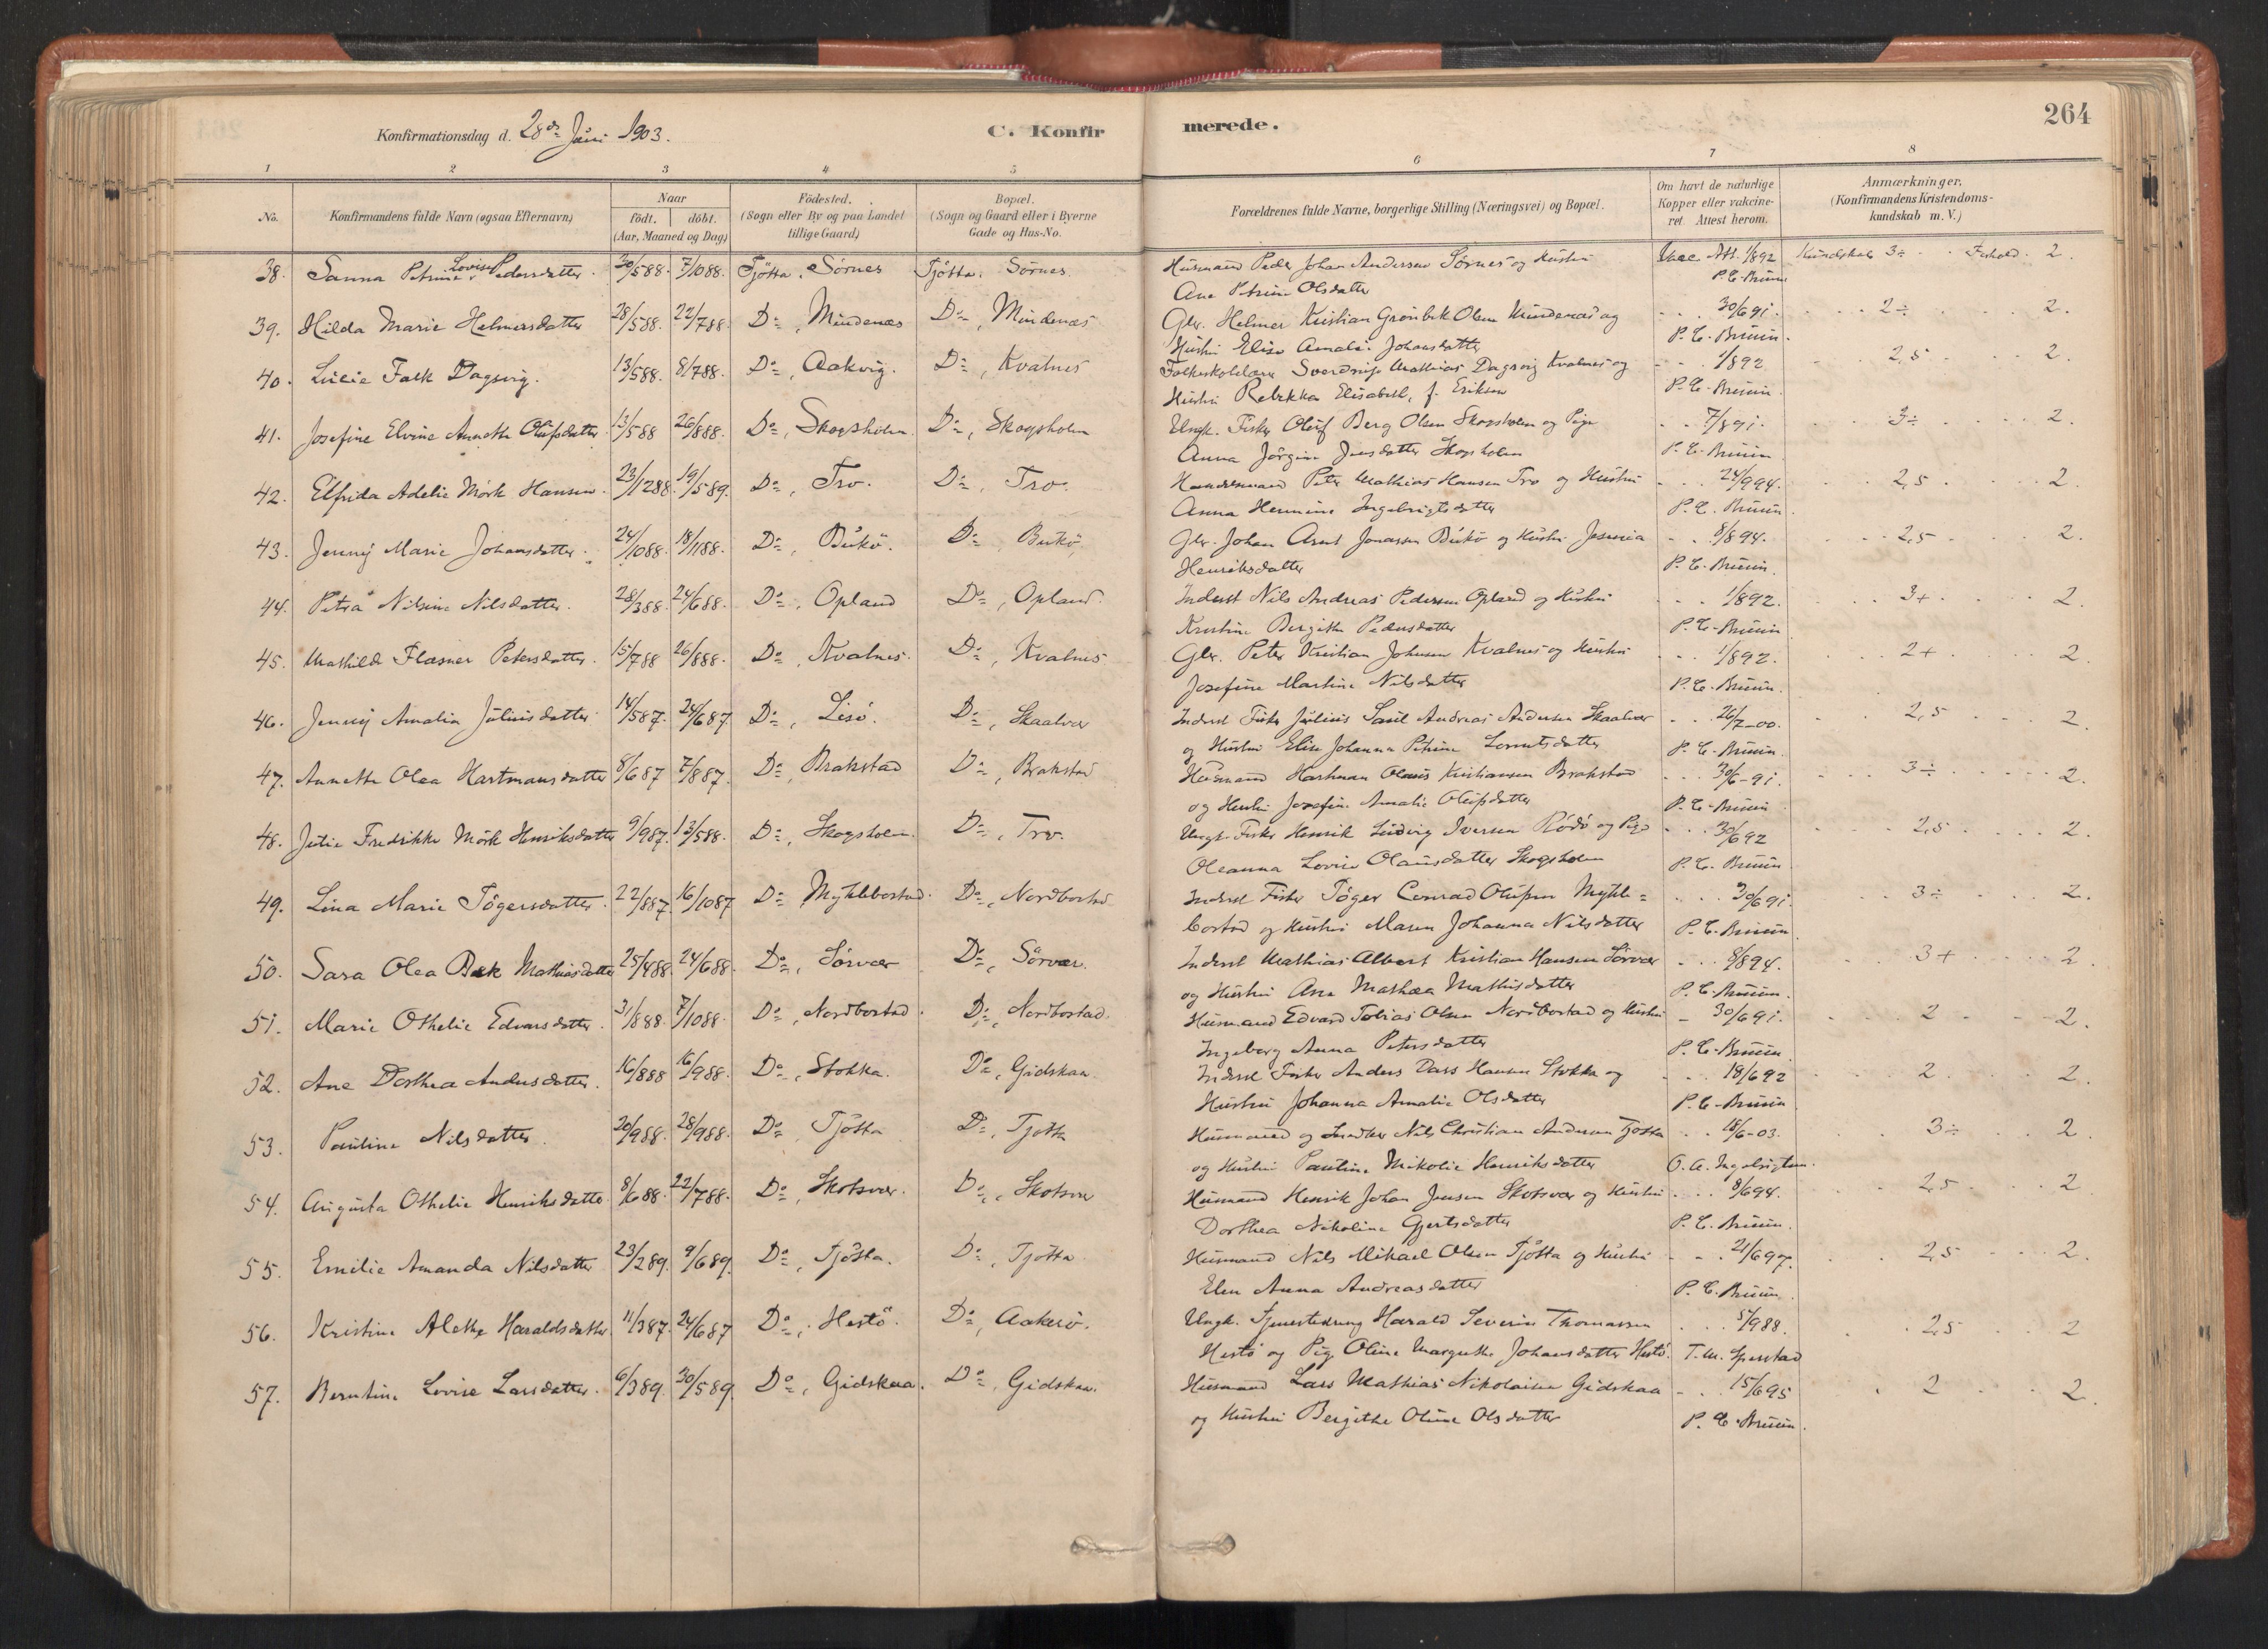 264
Konfirmationsdag d. 28de Juni 1903.
C. Konfirmerede.
1 2 3 4 5 6 7 8
No. Konfirmandens fulde Navn (ogsaa Efternavn) Naar født. døbt. (Aar, Maaned og Dag) Födested. (Sogn eller By og paa Landet tillige Gaard) Bopæl. (Sogn og Gaard eller i Byerne Gade og Hus-No. Forældrenes fulde Navne, borgerlige Stilling (Næringsvei) og Bopæl. Om havt de naturlige Kopper eller vakcineret. Attest herom. Anmærkninger. (Konfirmandens Kristendomskundskab m. V.)
38. Sanna Petrine Lovise Pedersdatter. 30/588. 7/1088. Tjötta, Sörnes Tjötta, Sörnes. Husmand Peder Johan Andersen Sörnes og Hustru Vacc. Att. 1/892 Kundskab 3÷ Forhold. 2.
Ane Petrine Olsdatter P. C. Bruun
39. Hilda Marie Helmersdatter 28/588. 22/788. Do, Mindenæs Do, Mindenæs Gbr. Helmer Kristian Grönbek Olsen Mindenæs og 30/691. 2÷ 2.
Hustru Elise Amalie Johansdatter P. C. Bruun.
40. Lucie Falk Dagsvig. 13/588. 8/788. Do, Aakvig. Do, Kvalnes Folkeskolelærer Sverdrup Mathias Dagsvig Kvalnes og 1/892 2,5 2.
Hustru Rebekka Elisabeth, f. Eriksen P. C. Bruun.
41. Josefine Elvine Annette Olufsdatter 13/588 26/888. Do, Skogsholm. Do, Skogsholm Ungk. Fisker Oluf Berg Olsen Skogsholm og Pige 7/891. 3÷ 2.
Anna Jörgine Jensdatter Skogsholm P. C. Bruun.
42. Elfrida Adelie Mörk Hansen. 23/1288. 19/589. Do, Tro. Do, Tro Handelsmand Peter Mathias Hansen Tro og Hustru 24/994. 2,5 2.
Anna Hermine Ingebrigtsdatter P. C. Bruun.
43. Jenny Marie Johansdatter. 24/1088. 18/1188. Do, Bukö. Do, Bukö Gbr. Johan Arnt Jonassen Bukö og Hustru 8/894. 2,5 2.
Henriksdatter P. C. Bruun.
44. Petra Nilsine Nilsdatter. 28/388. 24/688. Do, Opland Do, Opland. Inderst Nils Andreas Pedersen Opland og Hustru 1/892. 3+ 2.
Kristine Bergitte Pedersdatter P. C. Bruun
45. Mathilde Flæsner Petersdatter. 15/788 26/888. Do, Kvalnes. Do, Kvalnes Gbr. Peter Kristian Johnsen Kvalnes og Hustru 1/892. 2+ 2.
Josefine Martine Nilsdatter P. C. Bruun.
46. Jenny Amalia Juliusdatter 14/587. 24/687 Do, Lisö. Do, Skaalvær Inderst Fisker Julius Saul Andreas Andersen Skaalvær 26/7-00. 2,5 2.
og Hustru Elise Johanna Petrine Lorentsdatter P. C. Bruun.
47. Annette Olea Hartmansdatter 8/687 7/887. Do, Brakstad Do, Brakstad Husmand Hartman Olaus Kristiansen Brakstad 30/6-91 3÷ 2.
og Hustru Josefine Amalie Olufsdatter P. C. Bruun
48. Julie Fredrikke Mörk Henriksdatter 9/987. 13/588. Do, Skogsholm. Do, Tro. Ungk. Fisker Henrik Ludvig Iversen Rödö og Pige 30/692 2,5 2.
Oleanna Lovise Olausdatter Skogsholm P. C. Bruun
49. Lina Marie Tögersdatter. 22/887. 16/1087 Do, Myklebostad. Do, Nordbostad Inderst Fisker Töger Conrad Olufsen Mykle= 30/691. 3÷ 2.
bostad og Hustru Maren Johanna Nilsdatter P. C. Bruun.
50. Sara Olea Bek Mathiasdatter 25/488. 24/688. Do, Sörvær Do, Sörvær. Inderst Mathias Albert Kristian Hansen Sörvær 8/894. 3+ 2.
og Hustru Ane Mathea Mathisdatter P. C. Bruun.
51. Marie Othelie Edvarsdatter. 31/888. 7/1088. Do, Nordbostad. Do, Nordbostad. Husmand Edvard Tobias Olsen Nordbostad og Hustru 30/691. 2 2.
Ingeborg Anna Petersdatter P. C. Bruun.
52. Ane Dorthea Andersdatter. 16/888 16/988. Do, Stokka. Do, Gidskaa Inderst Fisker Anders Dass Hansen Stokka og 18/692 2 2.
Hustru Johanna Amalie Olsdatter P. C. Bruun
53. Pauline Nilsdatter. 20/988. 28/988. Do Tjötta Do, Tjötta Husmand og Snedker Nils Christian Andersen Tjötta 18/6-03. 3÷ 2.
og Hustru Pauline Nikolie Henriksdatter O. A. Ingebrigtsen.
54. Augusta Othelie Henriksdatter 8/688. 22/788. Do, Skotsvær. Do, Skotsvær Husmand Henrik Johan Jensen Skotsvær og Hustru 8/694. 2,5 2
Dorthea Nikoline Gjertsdatter P. C. Bruun.
55. Emilie Amanda Nilsdatter 23/289. 9/689. Do, Tjötta. Do, Tjötta Husmand Nils Mikael Olsen Tjötta og Hustru 21/697. 2,5 2.
Elen Anna Andreasdatter P. C. Bruun.
56. Kristine Alette Haraldsdatter 11/387. 24/687 Do, Hestö. Do, Aakerö. Ungk. Tjenestedreng Harald Severin Thomassen 5/988. 2,5 2
Hestö og Pige Oline Margrethe Johansdatter Hestö. T. M. Sperstad
57. Berntine Lovise Larsdatter. 6/389. 30/589. Do, Gidskaa. Do, Gidskaa. Husmand Lars Mathias Nikolaisen Gidskaa 15/695 2 2.
og Hustru Bergithe Oline Olsdatter P. C. Bruun.